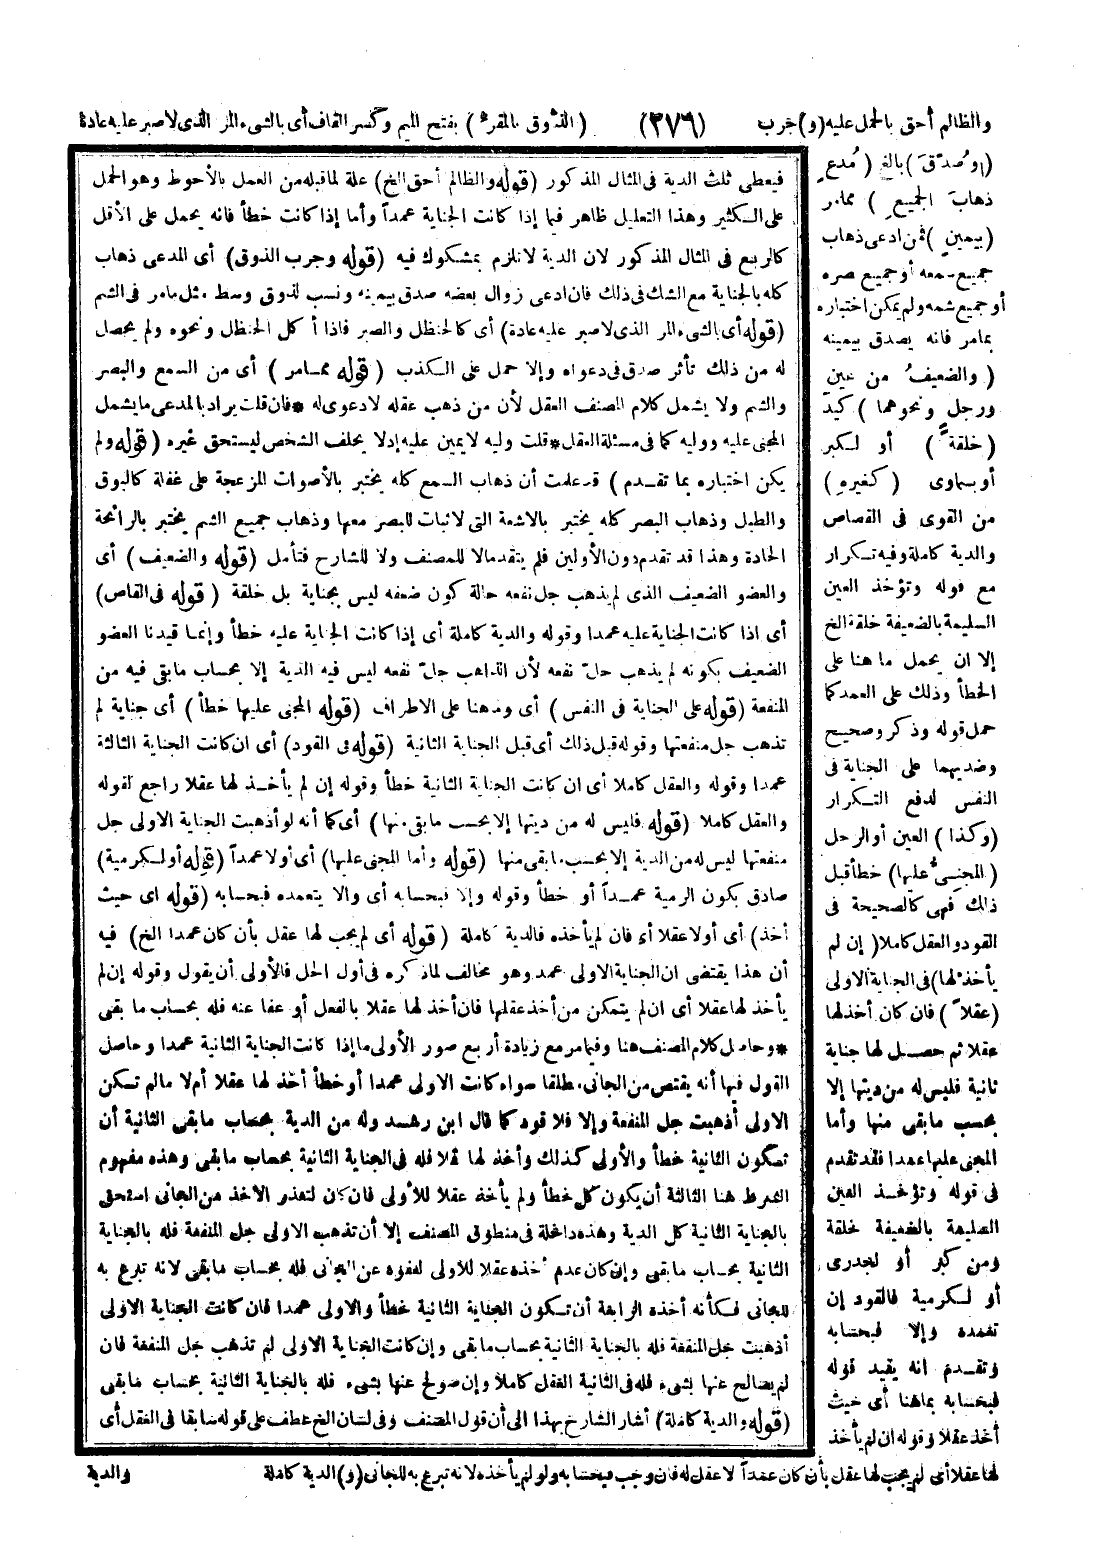 والظالم أحق بالحمل عليه (و) جرب (٢٧٦) (الذوق بالمقر) بفتح الميم وكسر القاف أى بالشىء المر الذى لا صبر عليه عادة
(وصُدّقَ) بالغ (مُدعٍ
ذهابَ الجميعِ) مما مر
(بيمينٍ) فمن ادعى ذهاب
جميع سمعه أو جميع بصره
أو جميع شمه ولم يمكن اختباره
بما مر فانه يصدق بيمينه
(والضعيفُ من عينٍ
ورجلٍ ونحوهما) كيد
(خلقةً) أو لكبر
أو سماوى (كغيرهِ)
من القوى فى القصاص
والدية كاملة وفيه تكرار
مع قوله وتؤخذ العين
السليمة بالضعيفة خلقة الخ
إلا ان يحمل ما هنا على
الخطأ وذلك على العمد كما
حمل قوله وذكر وصحيح
وضديهما على الجناية فى
النفس لدفع التكرار
(وكذا) العين أو الرجل
(المجنىُّ عليها) خطأ قبل
ذلك فهى كالصحيحة فى
القود والعقل كاملا (إن لم
يأخذ لها) فى الجناية الاولى
(عقلاً) فان كان أخذ لها
عقلا ثم حصل لها جناية
ثانية فليس له من ديتها إلا
بحسب ما بقى منها وأما
المجنى عليها عمدا فقد تقدم
فى قوله وتؤخذ العين
السليمة بالضعيفة خلقة
ومن كبر أو لجدرى
أو لكرمية فالقود إن
تعمده وإلا فبحسابه
وتقدم انه يقيد قوله
فبحسابه بما هنا أى حيث
أخذ عقلا وقوله ان لم يأخذ
لها عقلا أى لم يجب لها عقل بأن كان عمداً لا عقل له فان وجب فبحسابه ولو لم يأخذه لانه تبرع به للجانى (و) الدية كاملة
والدية
فيعطى ثلث الدية فى المثال المذكور (قوله والظالم أحق الخ) علة لما قبله من العمل بالأحوط وهو الحمل
على الكثير وهذا التعليل ظاهر فيما إذا كانت الجناية عمداً وأما إذا كانت خطأ فانه يحمل على الأقل
كالربع فى المثال المذكور لان الدية لا تلزم بمشكوك فيه (قوله وجرب الذوق) أى المدعى ذهاب
كله بالجناية مع الشك فى ذلك فان ادعى زوال بعضه صدق بيمينه ونسب لذوق وسط مثل ما مر فى الشم
(قوله أى بالشىء المر الذى لا صبر عليه عادة) أى كالحنظل والصبر فاذا أكل الحنظل ونحوه ولم يحصل
له من ذلك تأثر صدق فى دعواه وإلا حمل على الكذب (قوله مما مر) أى من السمع والبصر
والشم ولا يشمل كلام المصنف العقل لأن من ذهب عقله لا دعوى له * فان قلت يراد بالمدعى ما يشمل
المجنى عليه ووليه كما فى مسئلة العقل * قلت وليه لا يمين عليه إذ لا يحلف الشخص ليستحق غيره (قوله ولم
يكن اختباره بما تقدم) قد علمت أن ذهاب السمع كله يختبر بالأصوات المزعجة على غفلة كالبوق
والطبل وذهاب البصر كله يختبر بالاشعة التى لا ثبات للبصر معها وذهاب جميع الشم يختبر بالرائحة
الحادة وهذا قد تقدم دون الأولين فلم يتقدما لا للمصنف ولا للشارح فتأمل (قوله والضعيف) أى
والعضو الضعيف الذى لم يذهب جل نفعه حالة كون ضعفه ليس بجناية بل خلقة (قوله فى القاص)
أى اذا كانت الجناية عليه عمدا وقوله والدية كاملة أى إذا كانت الجناية عليه خطأ وإنما قيدنا العضو
الضعيف بكونه لم يذهب جلّ نفعه لأن الذاهب جلّ نفعه ليس فيه الدية إلا بحساب ما بقى فيه من
المنفعة (قوله على الجناية فى النفس) أى وما هنا على الاطراف (قوله المجنى عليها خطأ) أى جناية لم
تذهب جل منفعتها وقوله قبل ذلك أى قبل الجناية الثانية (قوله فى القود) أى ان كانت الجناية الثالثة
عمدا وقوله والعقل كاملا أى ان كانت الجناية الثانية خطأ وقوله إن لم يأخذ لها عقلا راجع لقوله
والعقل كاملا (قوله فليس له من ديتها إلا بحسب ما بقى منها) أى كما أنه لو أذهبت الجناية الاولى جل
منفعتها ليس له من الدية إلا بحسب ما بقى منها (قوله وأما المجنى عليها) أى أولا عمداً (قوله أو لكرمية)
صادق بكون الرمية عمداً أو خطأ وقوله وإلا فبحسابه أى والا يتعمده فبحسابه (قوله اى حيث
أخذ) أى أولا عقلا أى فان لم يأخذه فالدية كاملة (قوله أى لم يجب لها عقل بأن كان عمدا الخ) فيه
أن هذا يقتضى ان الجناية الاولى عمد وهو مخالف لما ذكره فى أول الحل فالأولى أن يقول وقوله إن لم
يأخذ لها عقلا أى ان لم يتمكن من أخذ عقلها فان أخذ لها عقلا بالفعل أو عفا عنه فله بحساب ما بقى
* وحاصل كلام المصنف هنا وفيما مر مع زيادة أربع صور الأولى ما إذا كانت الجناية الثانية عمدا وحاصل
القول فيها أنه يقتص من الجانى مطلقا سواء كانت الاولى عمدا أو خطأ أخذ لها عقلا أم لا ما لم تكن
الاولى أذهبت جل المنفعة وإلا فلا قود كما قال ابن رشد وله من الدية بحساب ما بقى الثانية أن
تكون الثانية خطأ والأولى كذلك وأخذ لها عقلا فله فى الجناية الثانية بحساب ما بقى وهذه مفهوم
الشرط هنا الثالثة أن يكون كل خطأ ولم يأخذ عقلا للأولى فان كان لتعذر الاخذ من الجانى استحق
بالجناية الثانية كل الدية وهذه داخلة فى منطوق المصنف إلا أن تذهب الاولى جل المنفعة فله بالجناية
الثانية بحساب ما بقى وإن كان عدم أخذه عقلا للأولى لعفوه عن الجانى فله بحساب ما بقى لانه تبرع به
للجانى فكأنه أخذه الرابعة أن تكون الجناية الثانية خطأ والاولى عمدا فان كانت الجناية الاولى
أذهبت جل المنفعة فله بالجناية الثانية بحساب ما بقى وإن كانت الجناية الاولى لم تذهب جل المنفعة فان
لم يصالح عنها بشىء فله فى الثانية العقل كاملا وإن صولح عنها بشىء فله بالجناية الثانية بحساب ما بقى
(قوله والدية كاملة) أشار الشارح بهذا الى أن قول المصنف وفى لسان الخ عطف على قوله سابقا فى العقل أى